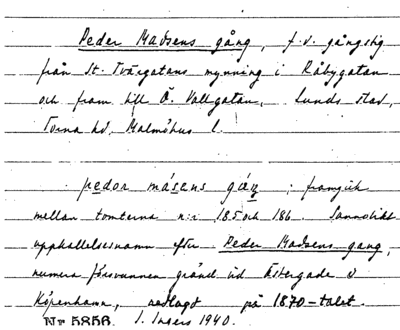 Peder Madsens gång, f.d. gångstig
från St. Tvärgatans mynning i Råbygatan
och fram till Ö. Vallgatan, Lunds stad,
Torna hd, Malmöhus l.
pedɷr másəns gáŋ : framgick
mellan tomterna n:r 185 och 186. Sannolikt
uppkallelsenamn efter Peder Madsens gang,
numera försvunnen gränd vid Østergade i
Köpenhamn, nedlagd på 1870-talet.
Nr 5856. I. Ingers 1940.